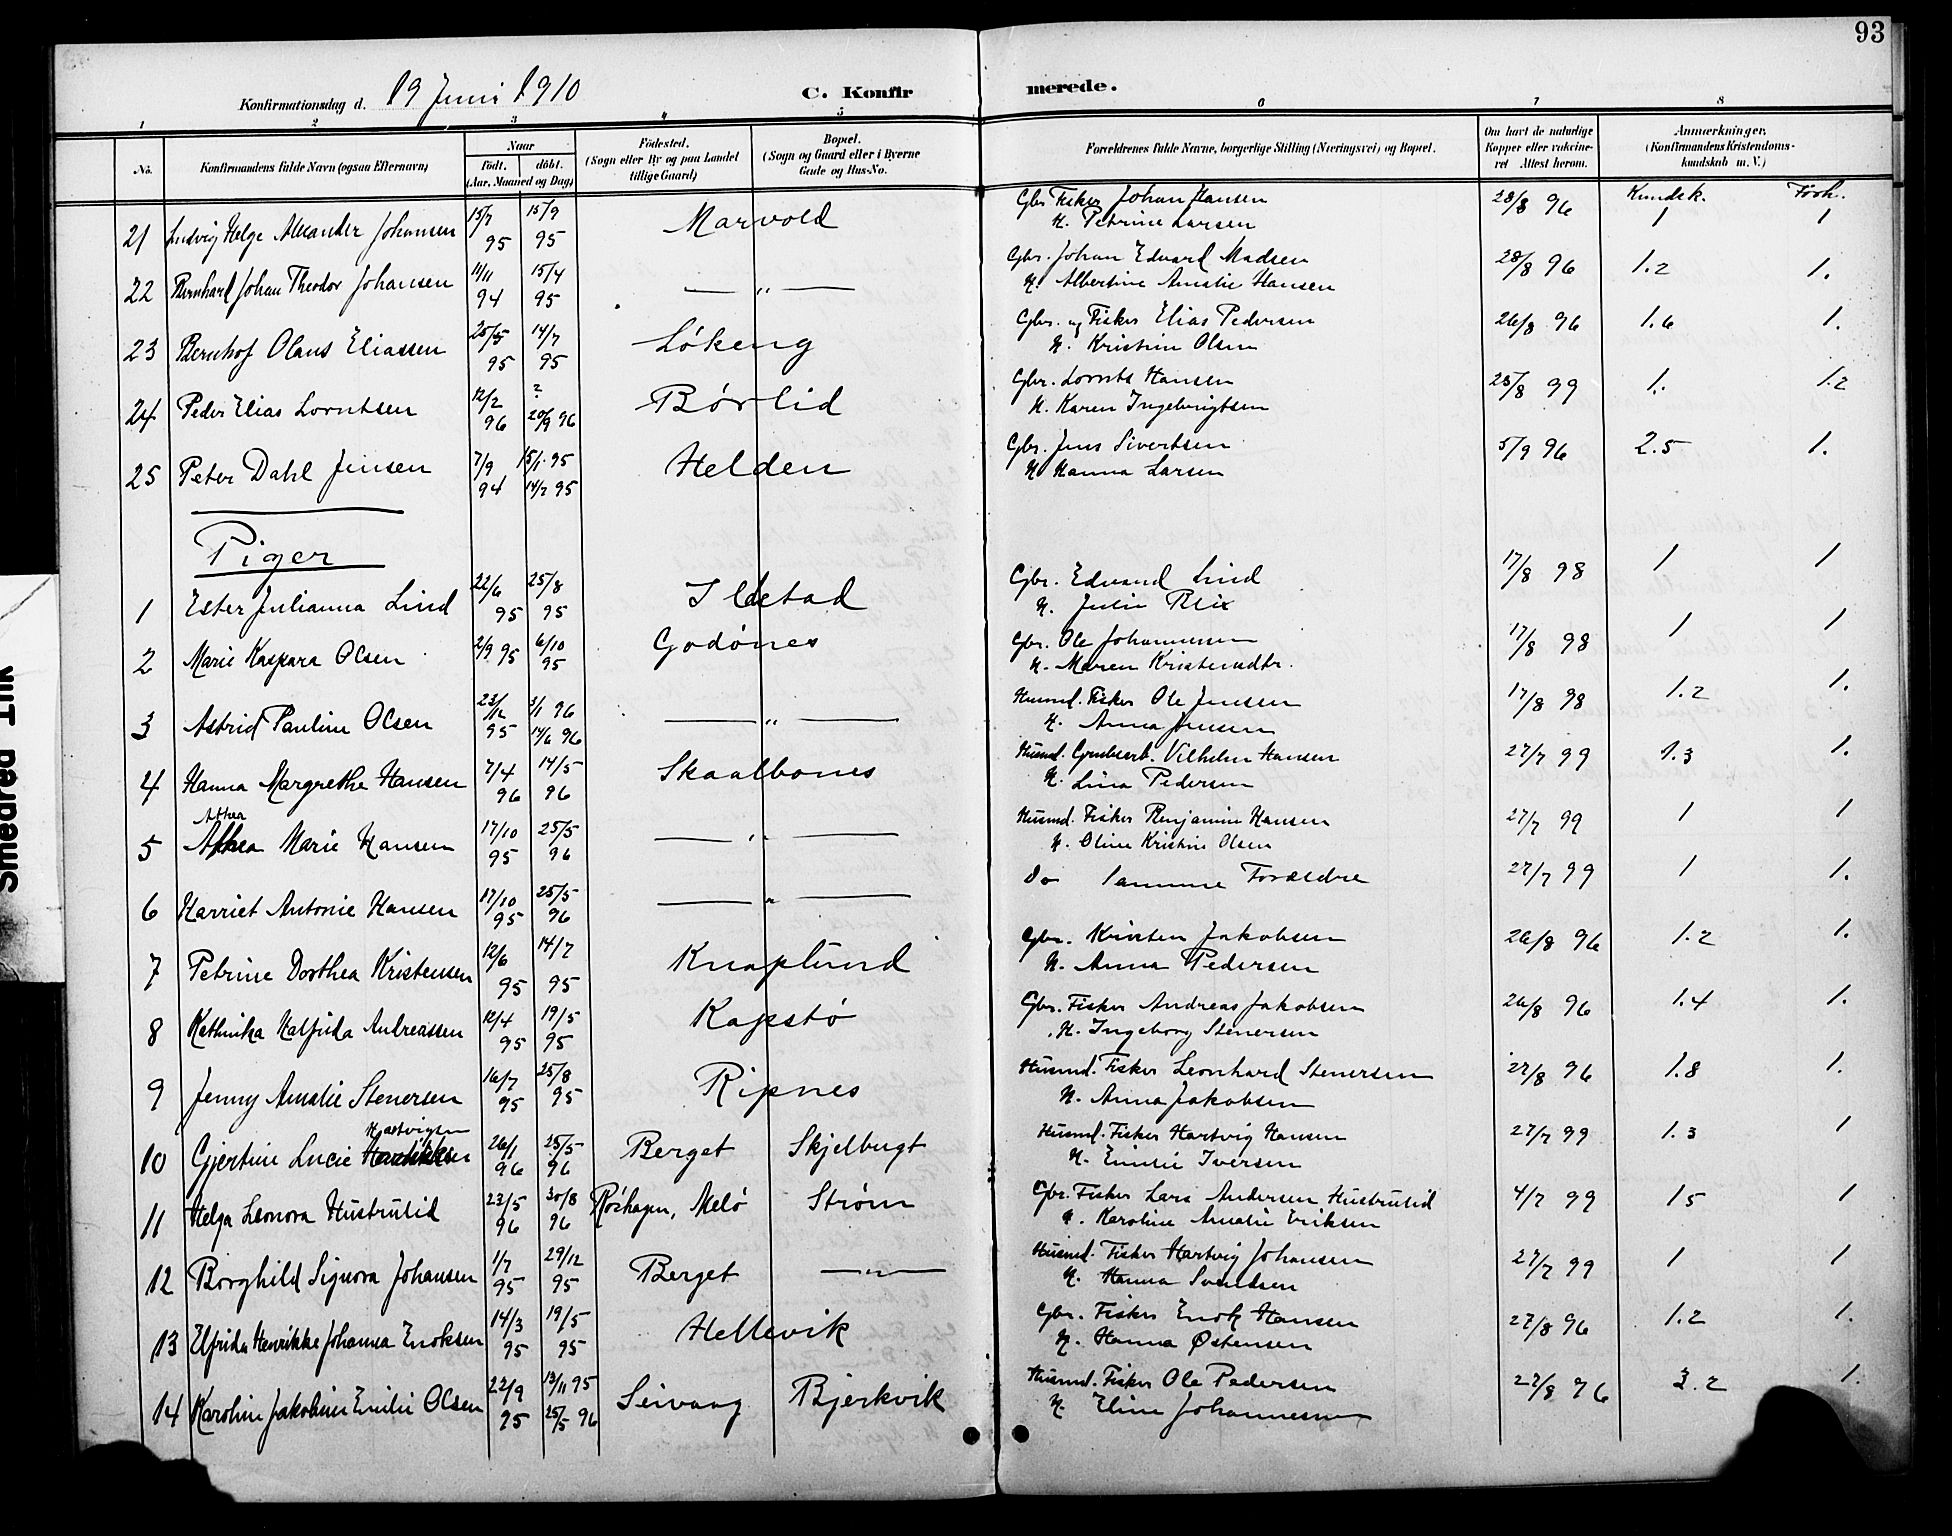 93
Konfirmationsdag d. 19 Juni 1910 C. Konfirmerede.
1 2 3 4 5 6 7 8
No. Konfirmandens fulde Navn (ogsaa Efternavn) Naar Födt. döbt. (Aar, Maaned og Dag) Födested. (Sogn eller By og paa Landet tillige Gaard) Bopæl. (Sogn og Gaard eller i Byerne Gade og Hus-No. Forældrenes fulde Navne, borgerlige Stilling (Næringsvei) og Bopæl. Om havt de naturlige Kopper eller vakcineret Attest herom. Anmærkninger. (Konfirmandens Kristendomskundskab m. V.)
Kundsk. Forh.
21 Ludvig Helge Alexander Johansen 15/7 95 15/9 95 Marvold Gbr Fisker Johan Hansen 28/8 96 1 1
H. Petrine Larsen
22 Bernhard Johan Theodor Johansen 11/11 94 15/4 95 — " — Gbr. Johan Edvard Madsen 28/8 96 1.2 1.
H. Albertine Amalie Hansen
23 Bernhof Olaus Eliassen 25/5 95 14/7 95 Løkeng Gbr. og Fisker Elias Pedersen 26/8 96 1.6 1.
H. Kristine Olsen
24 Peder Elias Lorntsen 12/2 96 ? 20/9 96 Børlid Gbr. Lornts Hansen 25/8 99 1. 1.2
H. Karen Ingebrigtsen
25 Peter Dahl Jensen 7/9 94 15/1 95 14/7 95 Helden Gbr. Jens Sivertsen 5/9 96 2.5 1.
H. Hanna Larsen
Piger
1 Ester Julianna Lind 22/6 95 25/8 95 Ildstad Gbr. Edvard Lind 17/8 98 1 1
H. Julie Blix
2 Marie Kaspara Olsen 2/9 95 6/10 95 Godønes Gbr. Ole Johannessen 17/8 98 1 1
H. Maren Kristensdtr.
3 Astrid Pauline Olsen 23/12 95 3/1 96 14/6 96 — " — Husmd. Fisker Ole Jenssen 17/8 98 1.2 1.
H. Anna Jensen
4 Hanna Margrethe Hansen 7/4 96 14/5 96 Skaalbones Husmd. Grubearb. Vilhelm Hansen 27/7 99 1.3 1.
H. Lina Pedersen
Althea
5 Marie Hansen 17/10 95 25/5 96 — " — Husmd. Fisker Benjamin Hansen 27/7 99 1 1
H. Oline Kristine Olsen
6 Harriet Antonie Hansen 17/10 95 25/5 96 — " — Do samme Forældre 27/7 99 1 1.
7 Petrine Dorthea Kristensen 12/6 95 14/7 95 Knaplund Gbr. Kristen Jakobsen 26/8 96 1.2 1.
H. Anna Pedersen
8 Kathinka Halfrida Andreassen 12/4 95 19/5 95 Kapstø Gbr. Fisker Andreas Jakobsen 26/8 96 1.4 1.
H. Ingeborg Stenersen
9 Jenny Amalie Stenersen 16/7 95 25/8 95 Ripnes Husmd. Fisker Leonhard Stenersen 27/8 96 1.8 1.
H. Anna Jakobsen
Hartvigsen
10 Gjertine Lucie 26/1 96 25/5 96 Berget Skjelbugt Husmd. Fisker Hartvig Hansen 27/7 99 1.3 1
H. Emilie Iversen
11 Helga Leonora Hustrulid 23/5 96 30/8 96 Røshagen, Melø Strøm Gbr. Fisker Lars Andersen Hustrulid 4/7 99 1 5 1
H. Karoline Amalie Eriksen
12 Borghild Signora Johansen 1/7 95 29/12 95 Berget — " — Husmd. Fisker Hartvig Johansen 27/7 99 1 1
H. Hanna Svendsen
13 Elfrida Henrikke Johanna Enoksen 14/3 95 19/5 95 Hellevik Gbr. Fisker Enok Hansen 27/8 96 1.2 1.
H. Hanna Østensen
14 Karoline Jakobine Emilie Olsen 22/9 95 13/11 95 25/5 96 Seivaag Bjerkvik Husmd. Fisker Ole Pedersen 27/8 96 3.2 1.
H. Eline Johannesen